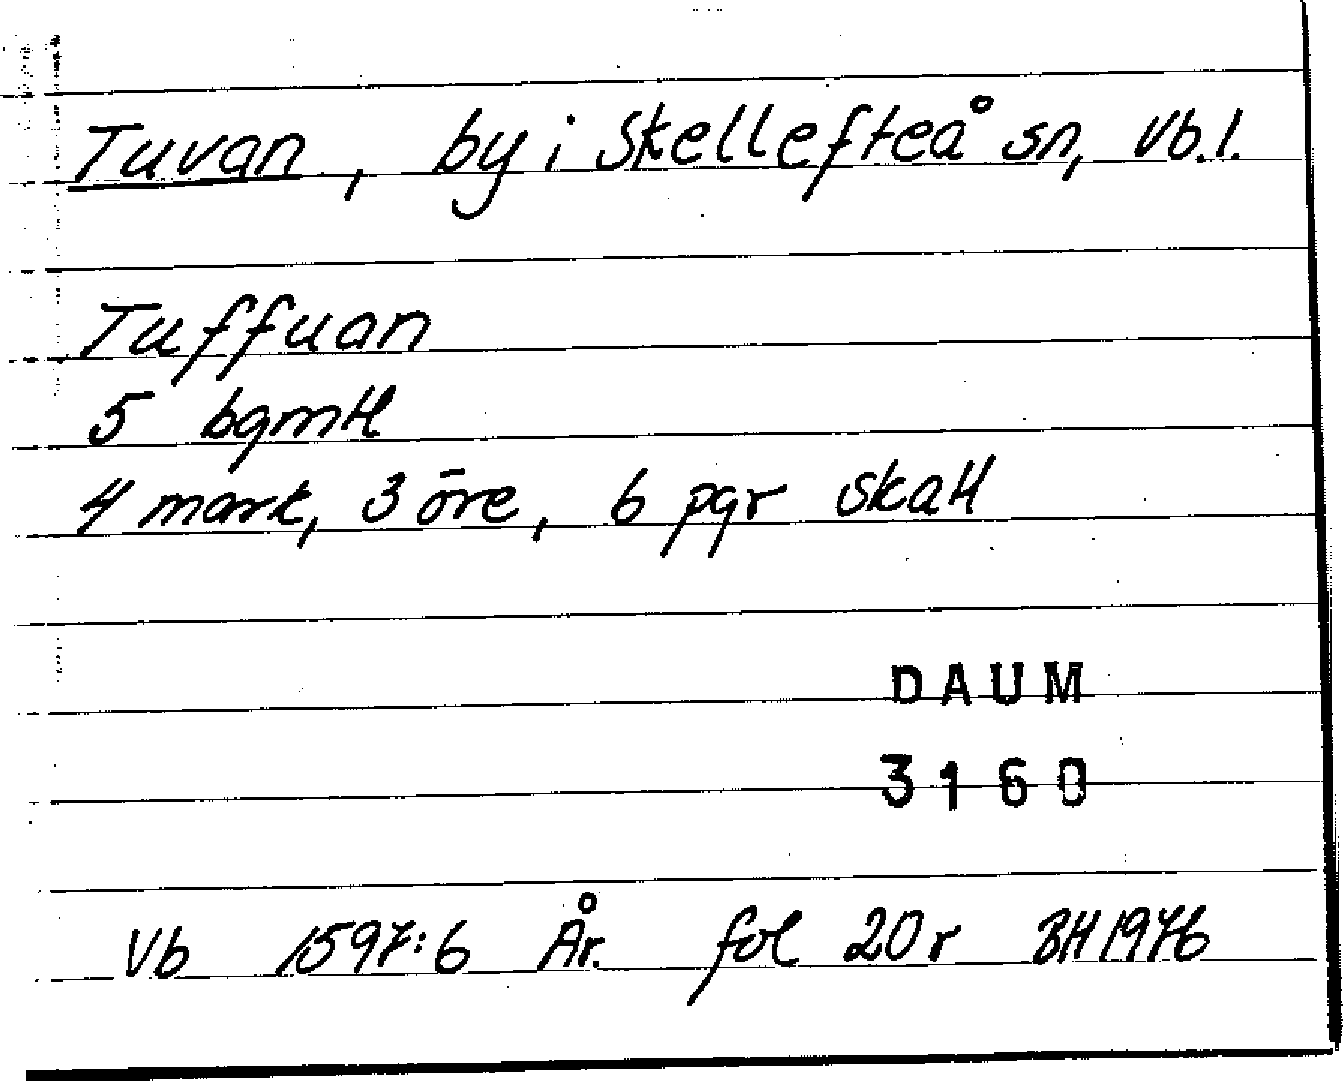 Tuvan, by i Skellefteå sn, Vb.l.
Tuffuan
5 bgmtl
4 mark, 3 öre, 6 pgr skatt
DAUM
3160
Vb 1597:6 År. fol 20r BH 1976